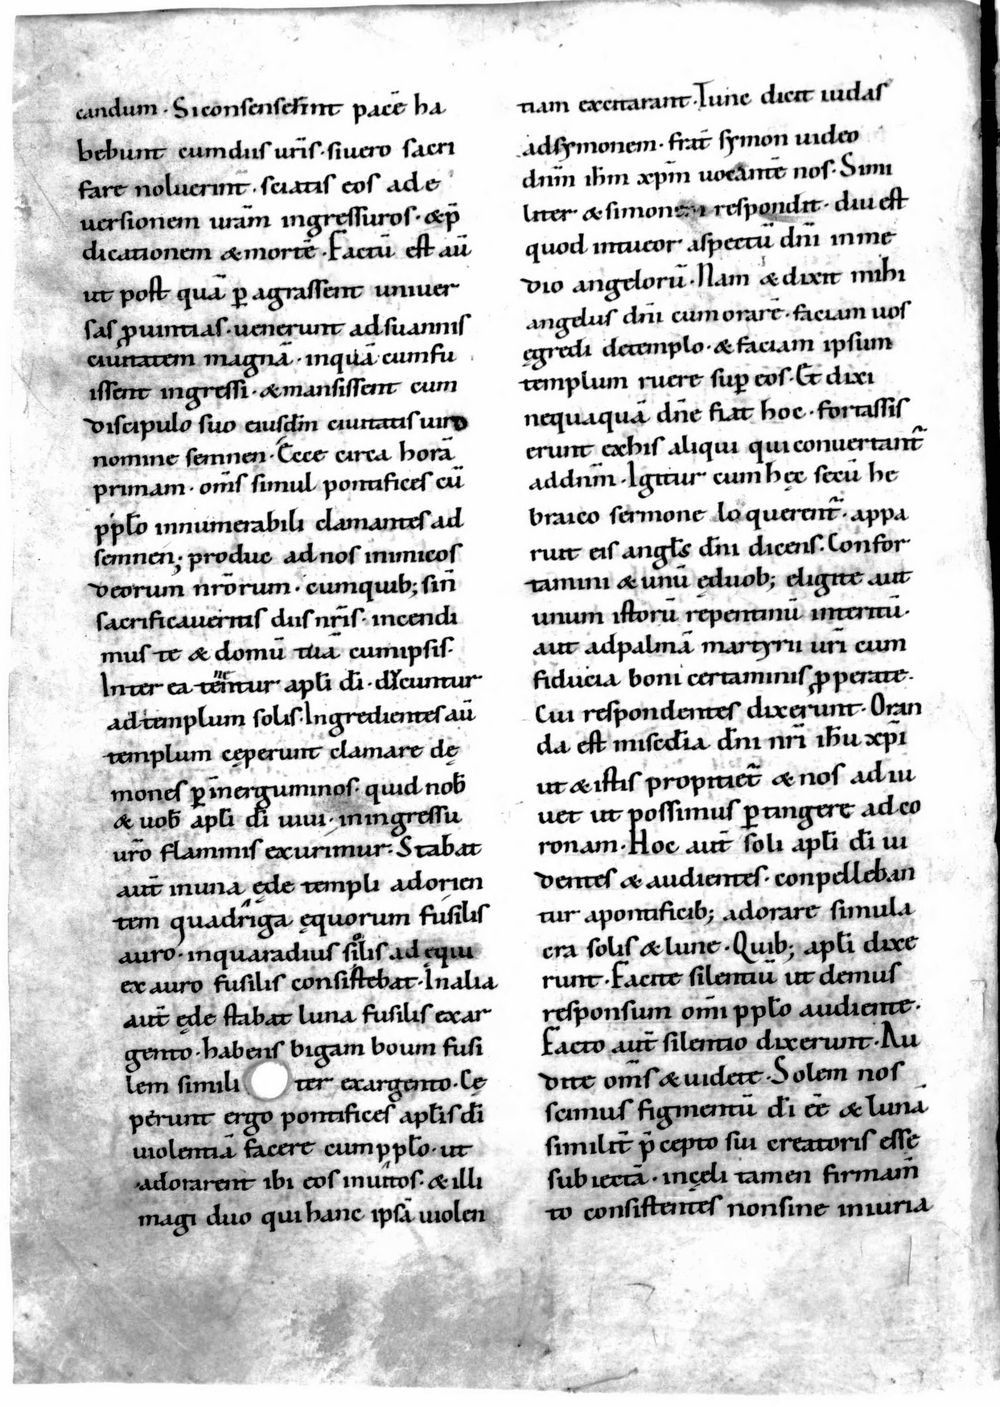 candum · Siconsenserint pacē ha
bebunt cumdiis ur̄is · siuero sacri
fare noluerint̄ · sciatis eos ad e
uersionem urām ingressuros · & p̄
dicationem & mortē · Factū est aū
ut post quā ꝑ agrassent uniuer
sas ꝓuintias · uenerunt ad suannis
ciuitatem magnā · inquā cumfu
issent ingressi · & mansissent cum
discipulo suo eiusdm̄ ciuitatis uiro
nomine semnen · Ecce circa horā
primam · om̄s simul pontifices cū
pꝑlo innumerabili clamantes ad
semnen; produc ad nos inimicos
deorum nrōrum · cumquib; sin̄
sacrificaueritis diis nr̄is · incendi
mus te & domū tuā cumipsis ·
Inter ea tenentur apl̄i dī · ducuntur
ad templum solis · Ingredientes aū
templum cęperunt clamare dę
mones ꝑ inerguminos · quid nob̄
& uob̄ apl̄i dī uiui · iningressu
ur̄o flammis exurimur · Stabat
aut̄ inuna ęde templi adorien
tem quadriga ęquorum fusilis
auro · inquaradius solis ad ęqui
ex auro fusilis consistebat · Inalia
aut̄ ęde stabat luna fusilis exar
gento · habens bigam boum fusi
lem simili ter exargento · Cę
perunt ergo pontifices apl̄is dī
uiolentiā facere cum pꝑlo · ut
adorarent ibi eos inuitos · & illi
magi duo qui hanc ipsā uiolen
tiam excitarant · Tunc dicit iudas
adsymonem · frat̄ symon uideo
dnm̄ ihm̄ xpm̄ uocantē nos · Simi
liter & simon respondit · diu est
quod intueor aspectū dn̄i in me
dio angelorū · Nam & dixit mihi
angelus dn̄i cum orarē · faciam uos
egredi detemplo · & faciam ipsum
templum ruere suꝑ eos · Et dixi
nequaquā dn̄e fiat hoc · fortassis
erunt exhis aliqui qui conuertant̄
addnm̄ · Igitur cum hęc secū he
braico sermone loquerent̄ · appa
ruit eis angl̄s dn̄i dicens · Confor
tamini & unū ęduob; eligite aut
unum istorū repentinū interitū ·
aut adpalmā martyrii ur̄i cum
fiducia boni certaminis ꝓperate ·
Cui respondentes dixerunt · Oran
da est misc̄dia dn̄i nr̄i ih̄u xp̄i
ut & istis propitiet̄ & nos ad iu
uet ut possimus ꝑtingere ad co
ronam · Hoc aut̄ soli apl̄i dī ui
dentes & audientes · conpelleban
tur apontificib; adorare simula
cra solis & lune · Quib; apl̄i dixe
runt · Facite silentiū ut demus
responsum omī pꝑlo audiente ·
Facto aut̄ silentio dixerunt · Au
dite om̄s & uidete · Solem nos
scimus figmentū dī eē & lunā
similit̄ p̄cepto sui creatoris esse
subiectā · incęli tamen firmam̄
to consistentes nonsine iniuria